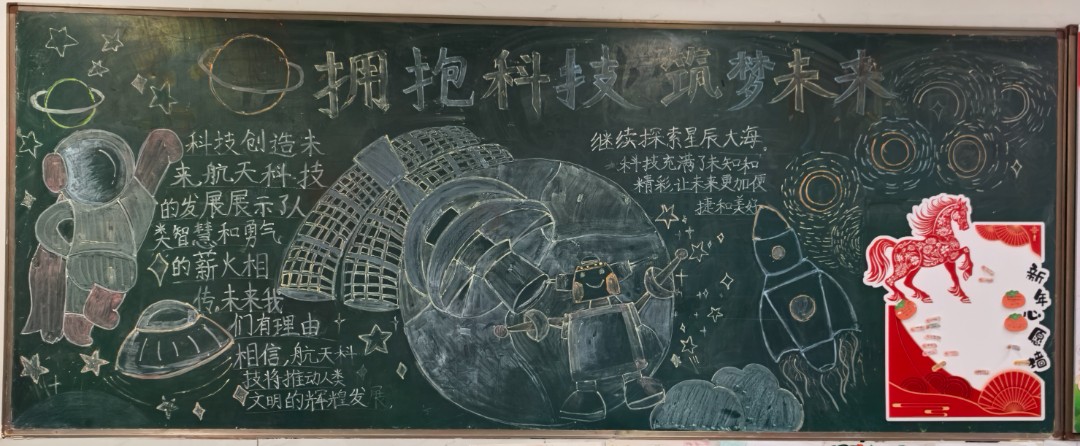 拥抱科技筑梦未来
科技创造未
来,航天科技
的发展展示了人
类智慧和勇气
的薪火相
传,未来我
们有理由
相信,航天科
技将推动人类
文明的辉煌发展
继续探索星辰大海。
科技充满了未知和
精彩,让未来更加便
捷和美好
新年心愿墙